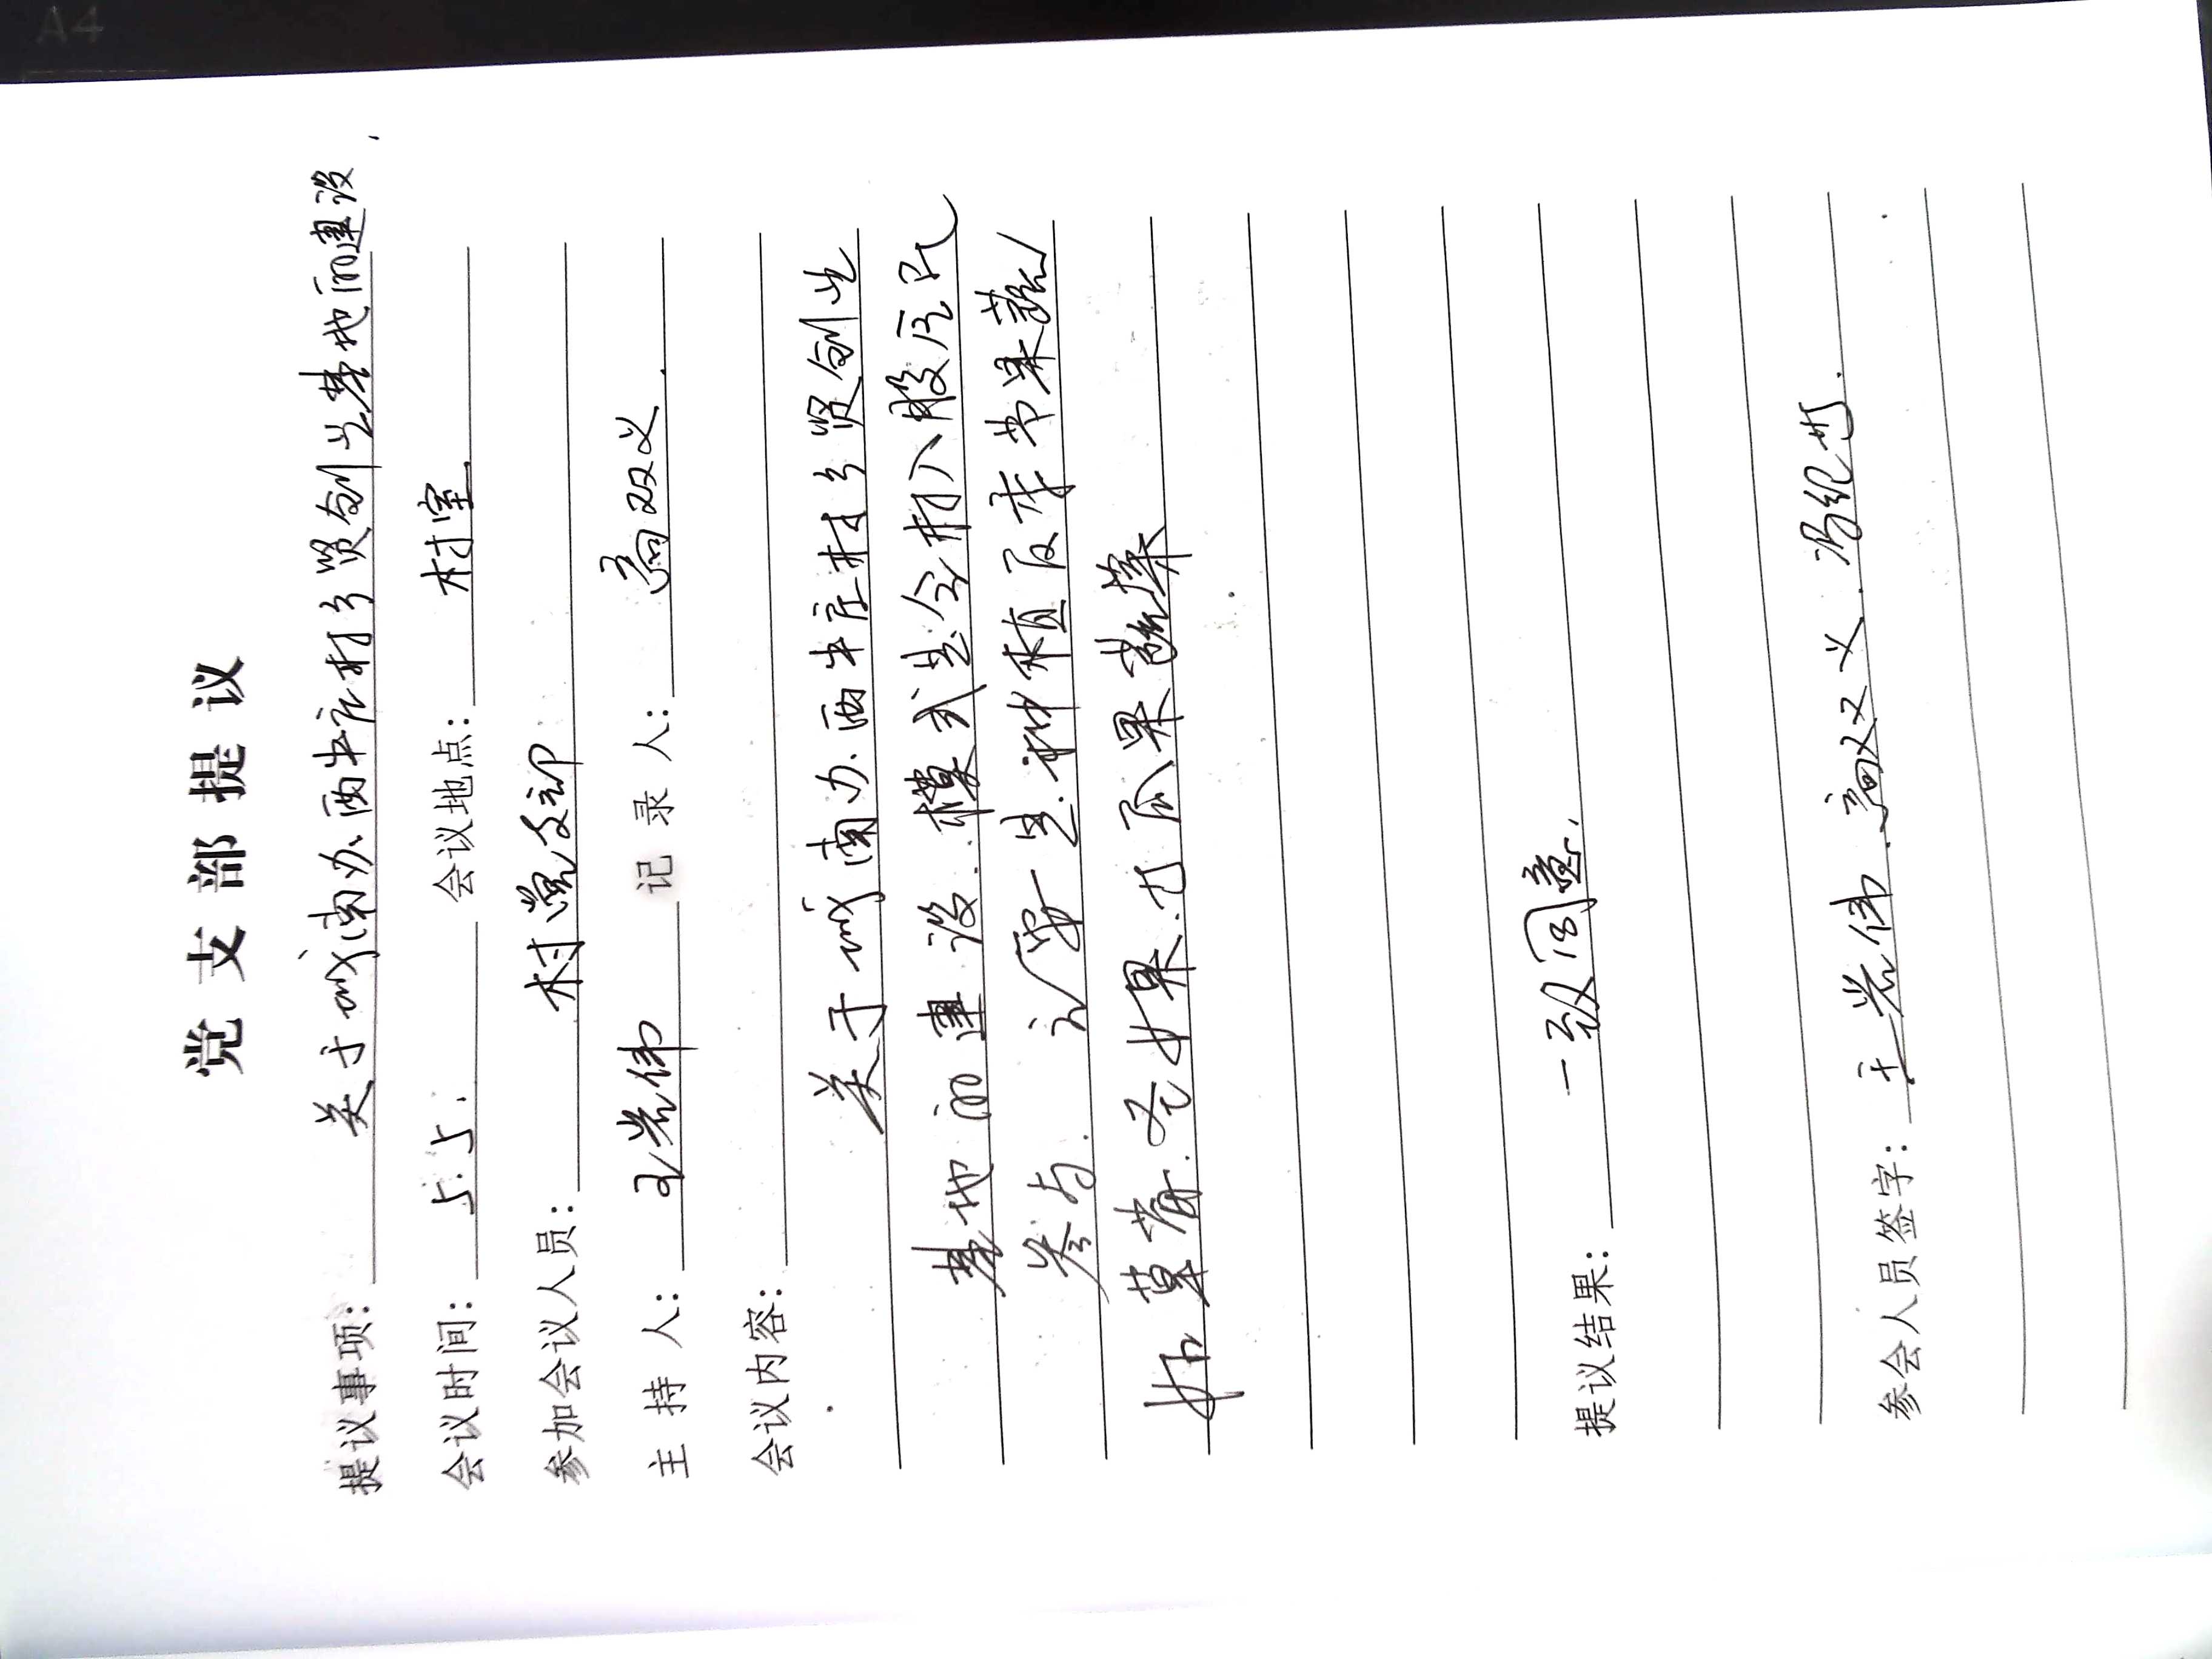 党支部提议
提议事项: 关于城南办西牛庄村乡贤创业基地的建设.
会议时间: 5.5. 会议地点: 村室
参加会议人员: 村党支部
主持人: 王岩伟 记录人: 高双义.
会议内容:
关于城南办西牛庄村乡贤创业
基地的建设.模式是全村入股居民
参与. 主要是种植反季节果蔬
如草莓.圣女果.甘瓜果蔬菜
提议结果: 一致同意.
参会人员签字: 王岩伟.高双义.冯纪世.